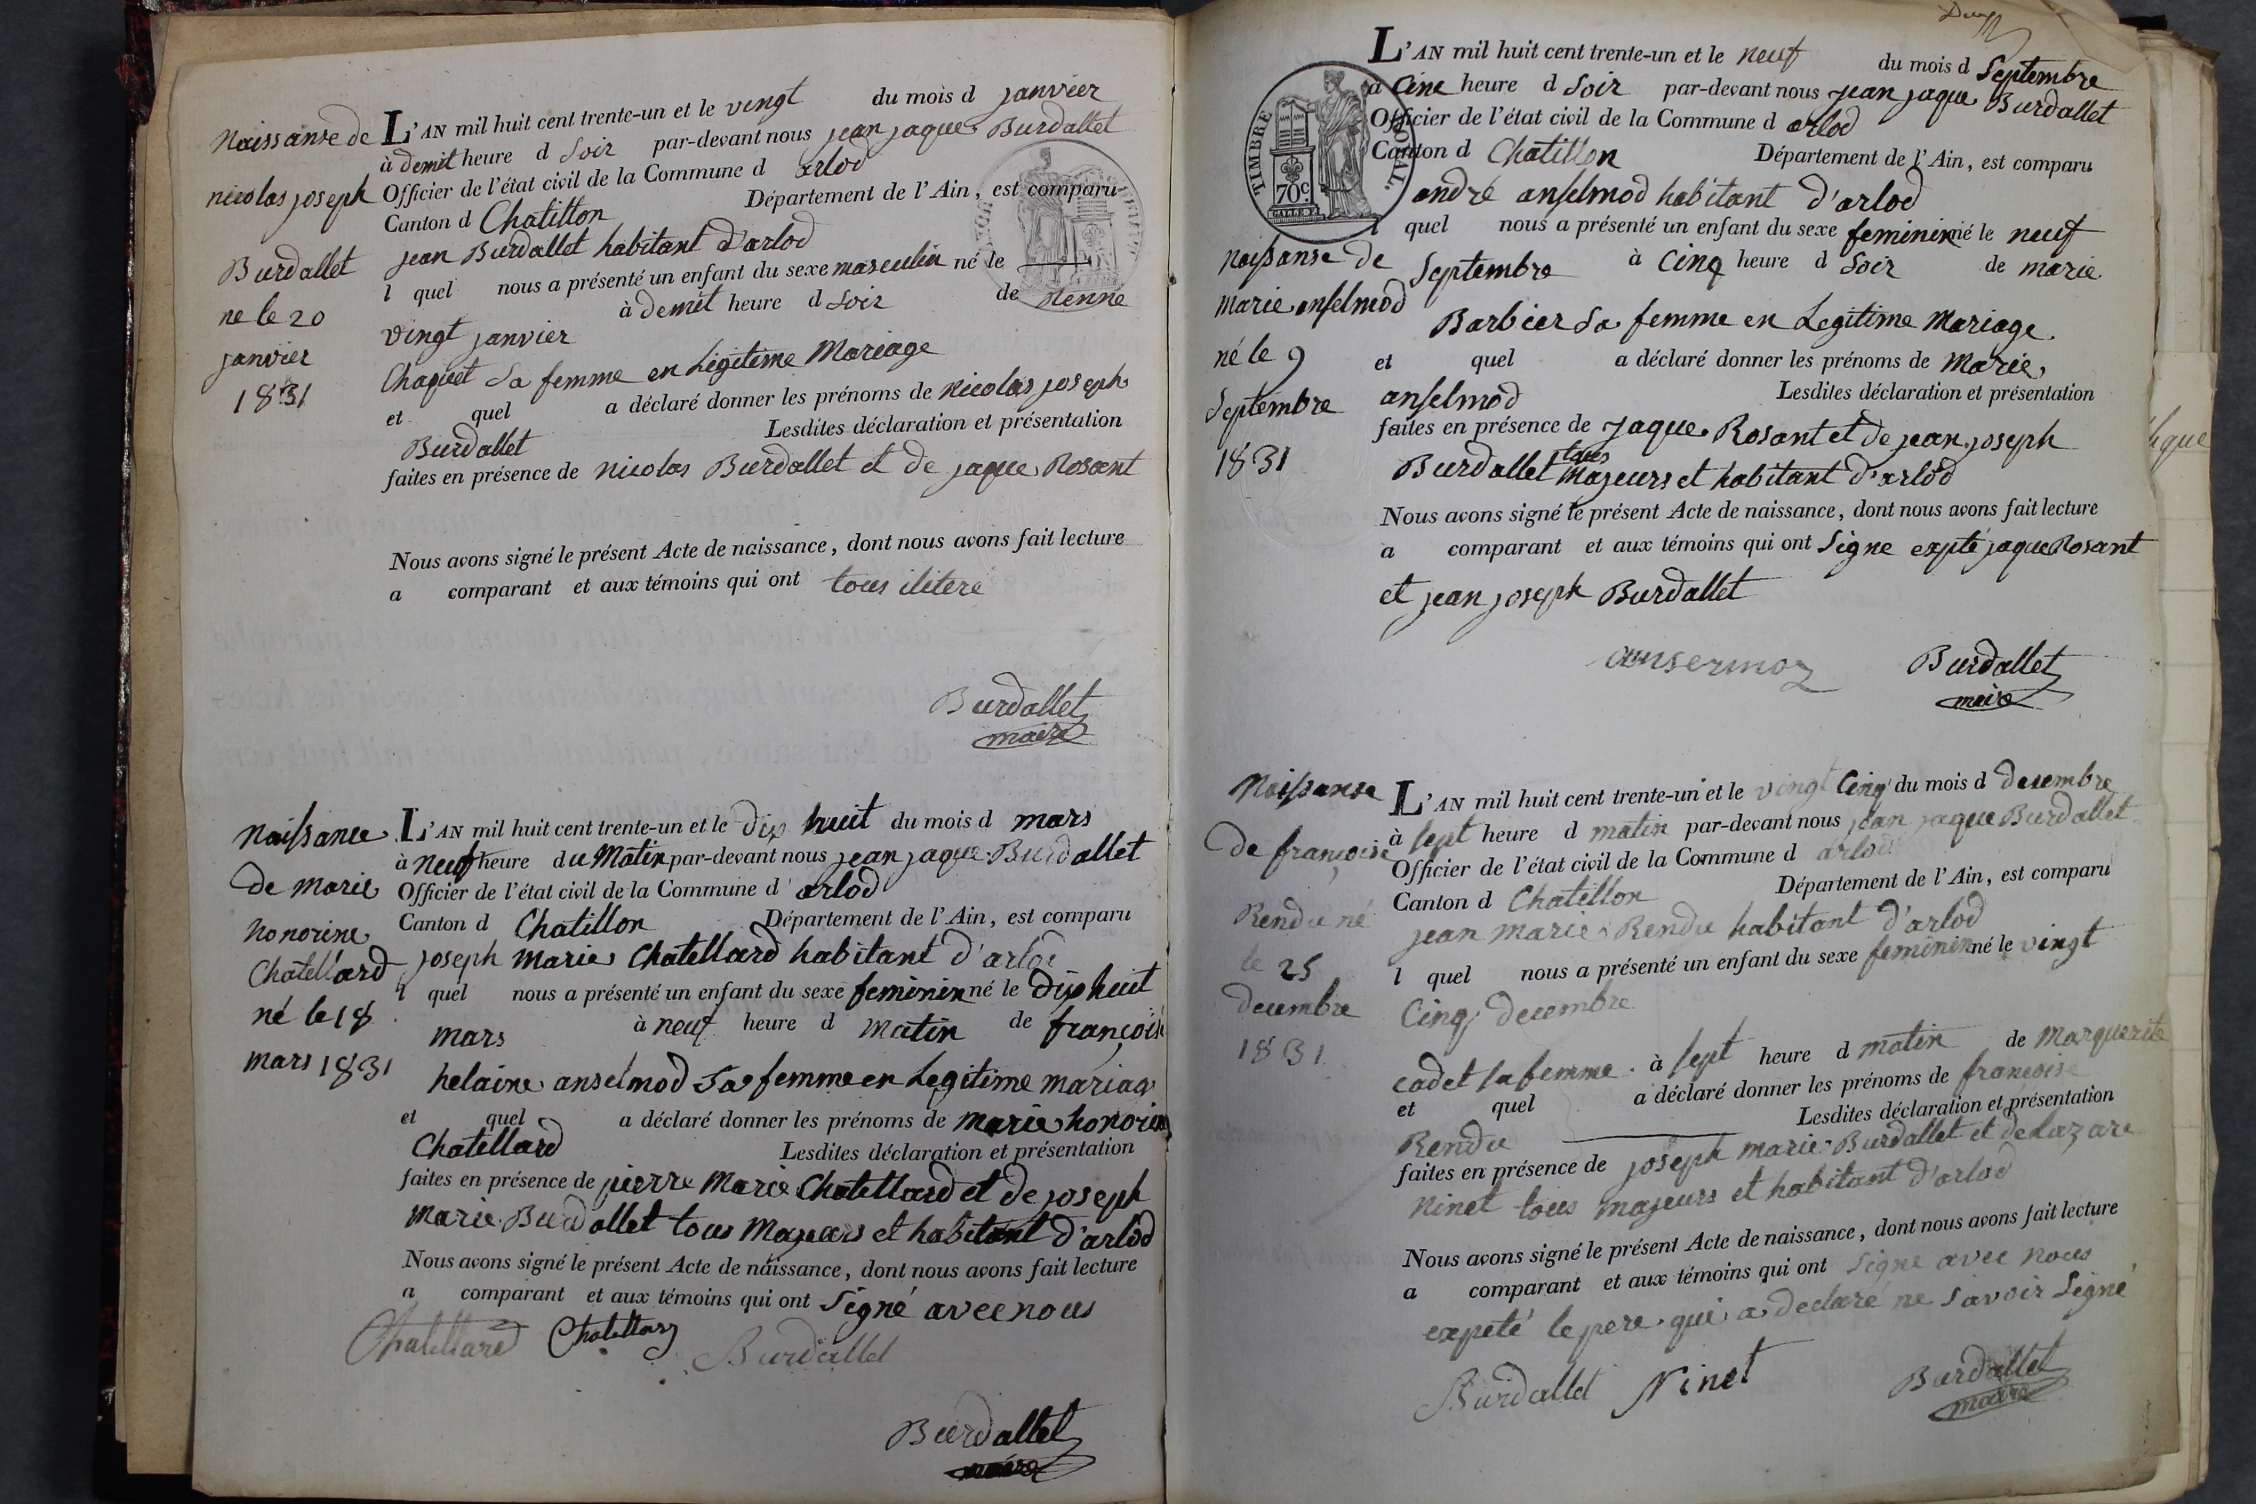 Naissanse de
nicolas joseph
Burdallet
ne le 20
janvier
1831
L'AN mil huit cent trente-un et le vingt du mois d janvier
à demit heure d Soir par-devant nous jean jaque Burdallet
Officier de l'état civil de la Commune d arlod
Canton d Chatillon Département de l'Ain, est comparu
jean Burdallet habitant d'arlod
l quel nous a présenté un enfant du sexe masculin né le
vingt janvier à demit heure d Soir de nenne
Chaquet Sa femme en Légitime Mariage
et quel a déclaré donner les prénoms de nicolas joseph
Burdallet Lesdites déclaration et présentation
faites en présence de nicolas Burdallet et de jaque Rosant
Nous avons signé le présent Acte de naissance, dont nous avons fait lecture
a comparant et aux témoins qui ont tous ilitere
Burdallet
maire
naissance
de marie
honorine
Chatellard
né le 18
mars 1831
L'AN mil huit cent trente-un et le dix huit du mois d mars
à neuf heure du Matin par-devant nous jean jaque Burdallet
Officier de l'état civil de la Commune d arlod
Canton d Chatillon Département de l'Ain, est comparu
joseph Marie Chatellard habitant d'arlod
l quel nous a présenté un enfant du sexe feminin né le dix huit
mars à neuf heure d matin de françoise
helaine anselmod Sa femme en Legitime mariage
et quel a déclaré donner les prénoms de marie honorine
Chatellard Lesdites déclaration et présentation
faites en présence de pierre Marie Chatellard et de joseph
Marie Burdallet tous Majeurs et habitant d'arlod
Nous avons signé le présent Acte de naissance, dont nous avons fait lecture
a comparant et aux témoins qui ont Signé avec nous
Chatellard Chatellard Burdallet
Burdallet
maire
TIMBRE ROYAL.
70c.
naissanse de
marie anselmod
né le 9
Septembre
1831
L'AN mil huit cent trente-un et le neuf du mois d Septembre
à Cinc heure d Soir par-devant nous jean jaque Burdallet
Officier de l'état civil de la Commune d arlod
Canton d Chatillon Département de l'Ain, est comparu
andré anselmod habitant d'arlod
l quel nous a présenté un enfant du sexe feminin né le neuf
Septembre à Cinq heure d Soir de marie
Barbier Sa femme en Legitime Mariage
et quel a déclaré donner les prénoms de Marie
anselmod Lesdites déclaration et présentation
faites en présence de jaque Rosant et de jean joseph
Burdallet tous Majeurs et habitant d'arlod
Nous avons signé le présent Acte de naissance, dont nous avons fait lecture
a comparant et aux témoins qui ont Signe expté jaque Rosant
et jean joseph Burdallet
ansermoz Burdallet
maire
Naissanse
de françoise
Rendu né
le 25
decembre
1831
L'AN mil huit cent trente-un et le vingt Cinq du mois d decembre
à sept heure d matin par-devant nous jean jaque Burdallet
Officier de l'état civil de la Commune d arlod
Canton d Chatillon Département de l'Ain, est comparu
jean Marie Rendu habitant d'arlod
l quel nous a présenté un enfant du sexe feminin né le vingt
Cinq decembre
cadet sa femme à sept heure d matin de Marguerite
et quel a déclaré donner les prénoms de françoise
Rendu Lesdites déclaration et présentation
faites en présence de joseph marie Burdallet et de Lazare
Ninet tous majeurs et habitant d'arlod
Nous avons signé le présent Acte de naissance, dont nous avons fait lecture
a comparant et aux témoins qui ont Signe avec nous
expeté le pere qui a declaré ne Savoir Signé
Burdallet Ninet Burdallet
maire